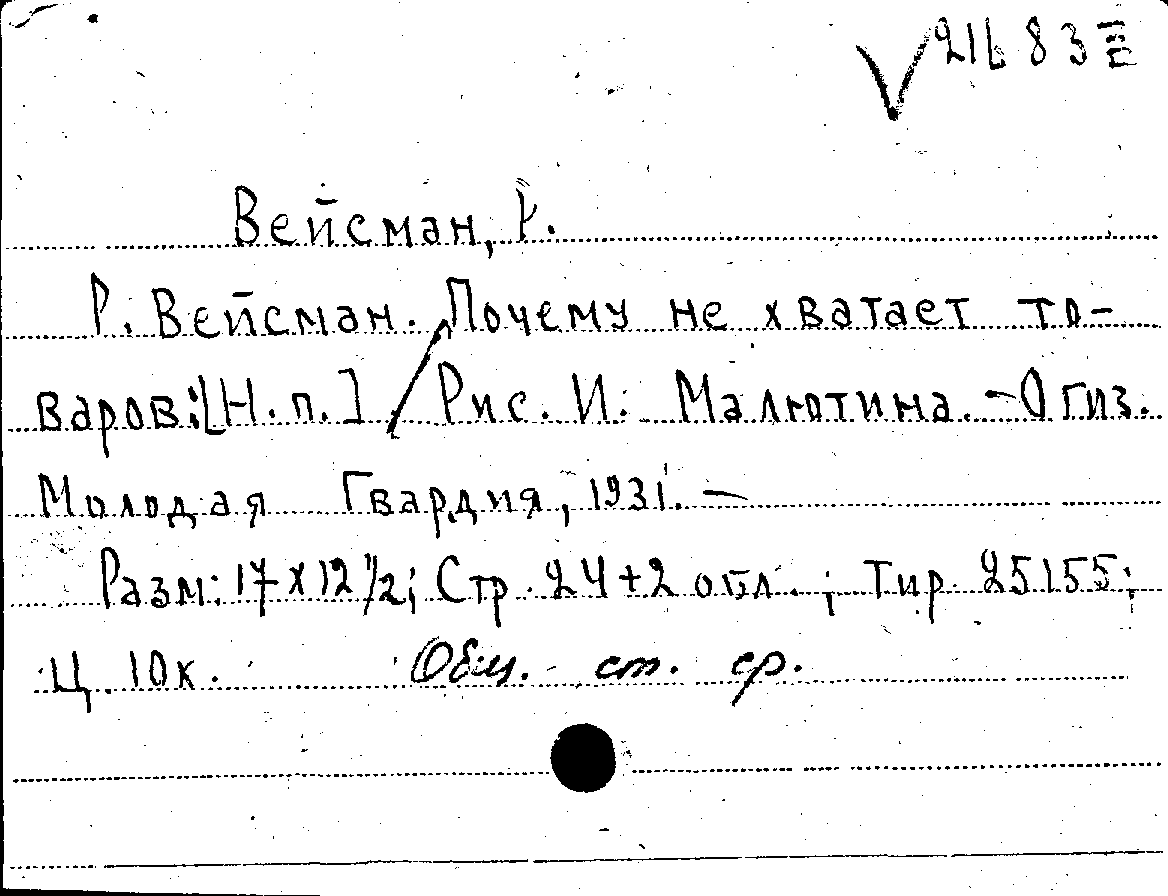 Вейсман, Р.
Р. Вейсман. Почему не хватает то-
варов: [Н. п.] / Рис. И. Малютина. - Огиз.
Молодая Гвардия, 1931. —
Разм: 17 x 12 1/2; Стр. 24 + 2 обл. ; Тир 25155;
Ц 10к. Общ. ст. ср.